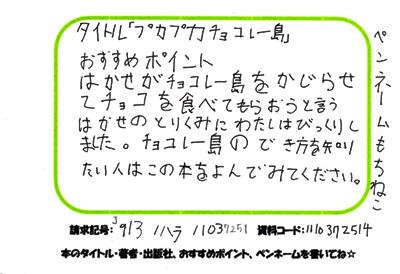 タイトル「プカプカチョコレー島」
おすすめポイント
はかせがチョコレー島をかじらせ
てチョコを食べてもらおうと言う
はかせのとりくみにわたしはびっくりし
ました。チョコレー島のでき方を知り
たい人はこの本をよんでみてください。
ペンネームもちねこ
請求記号:J913 ハラ 11037251 資料コード:1110372514
本のタイトル・著者・出版社、おすすめポイント、ペンネームを書いてね☆